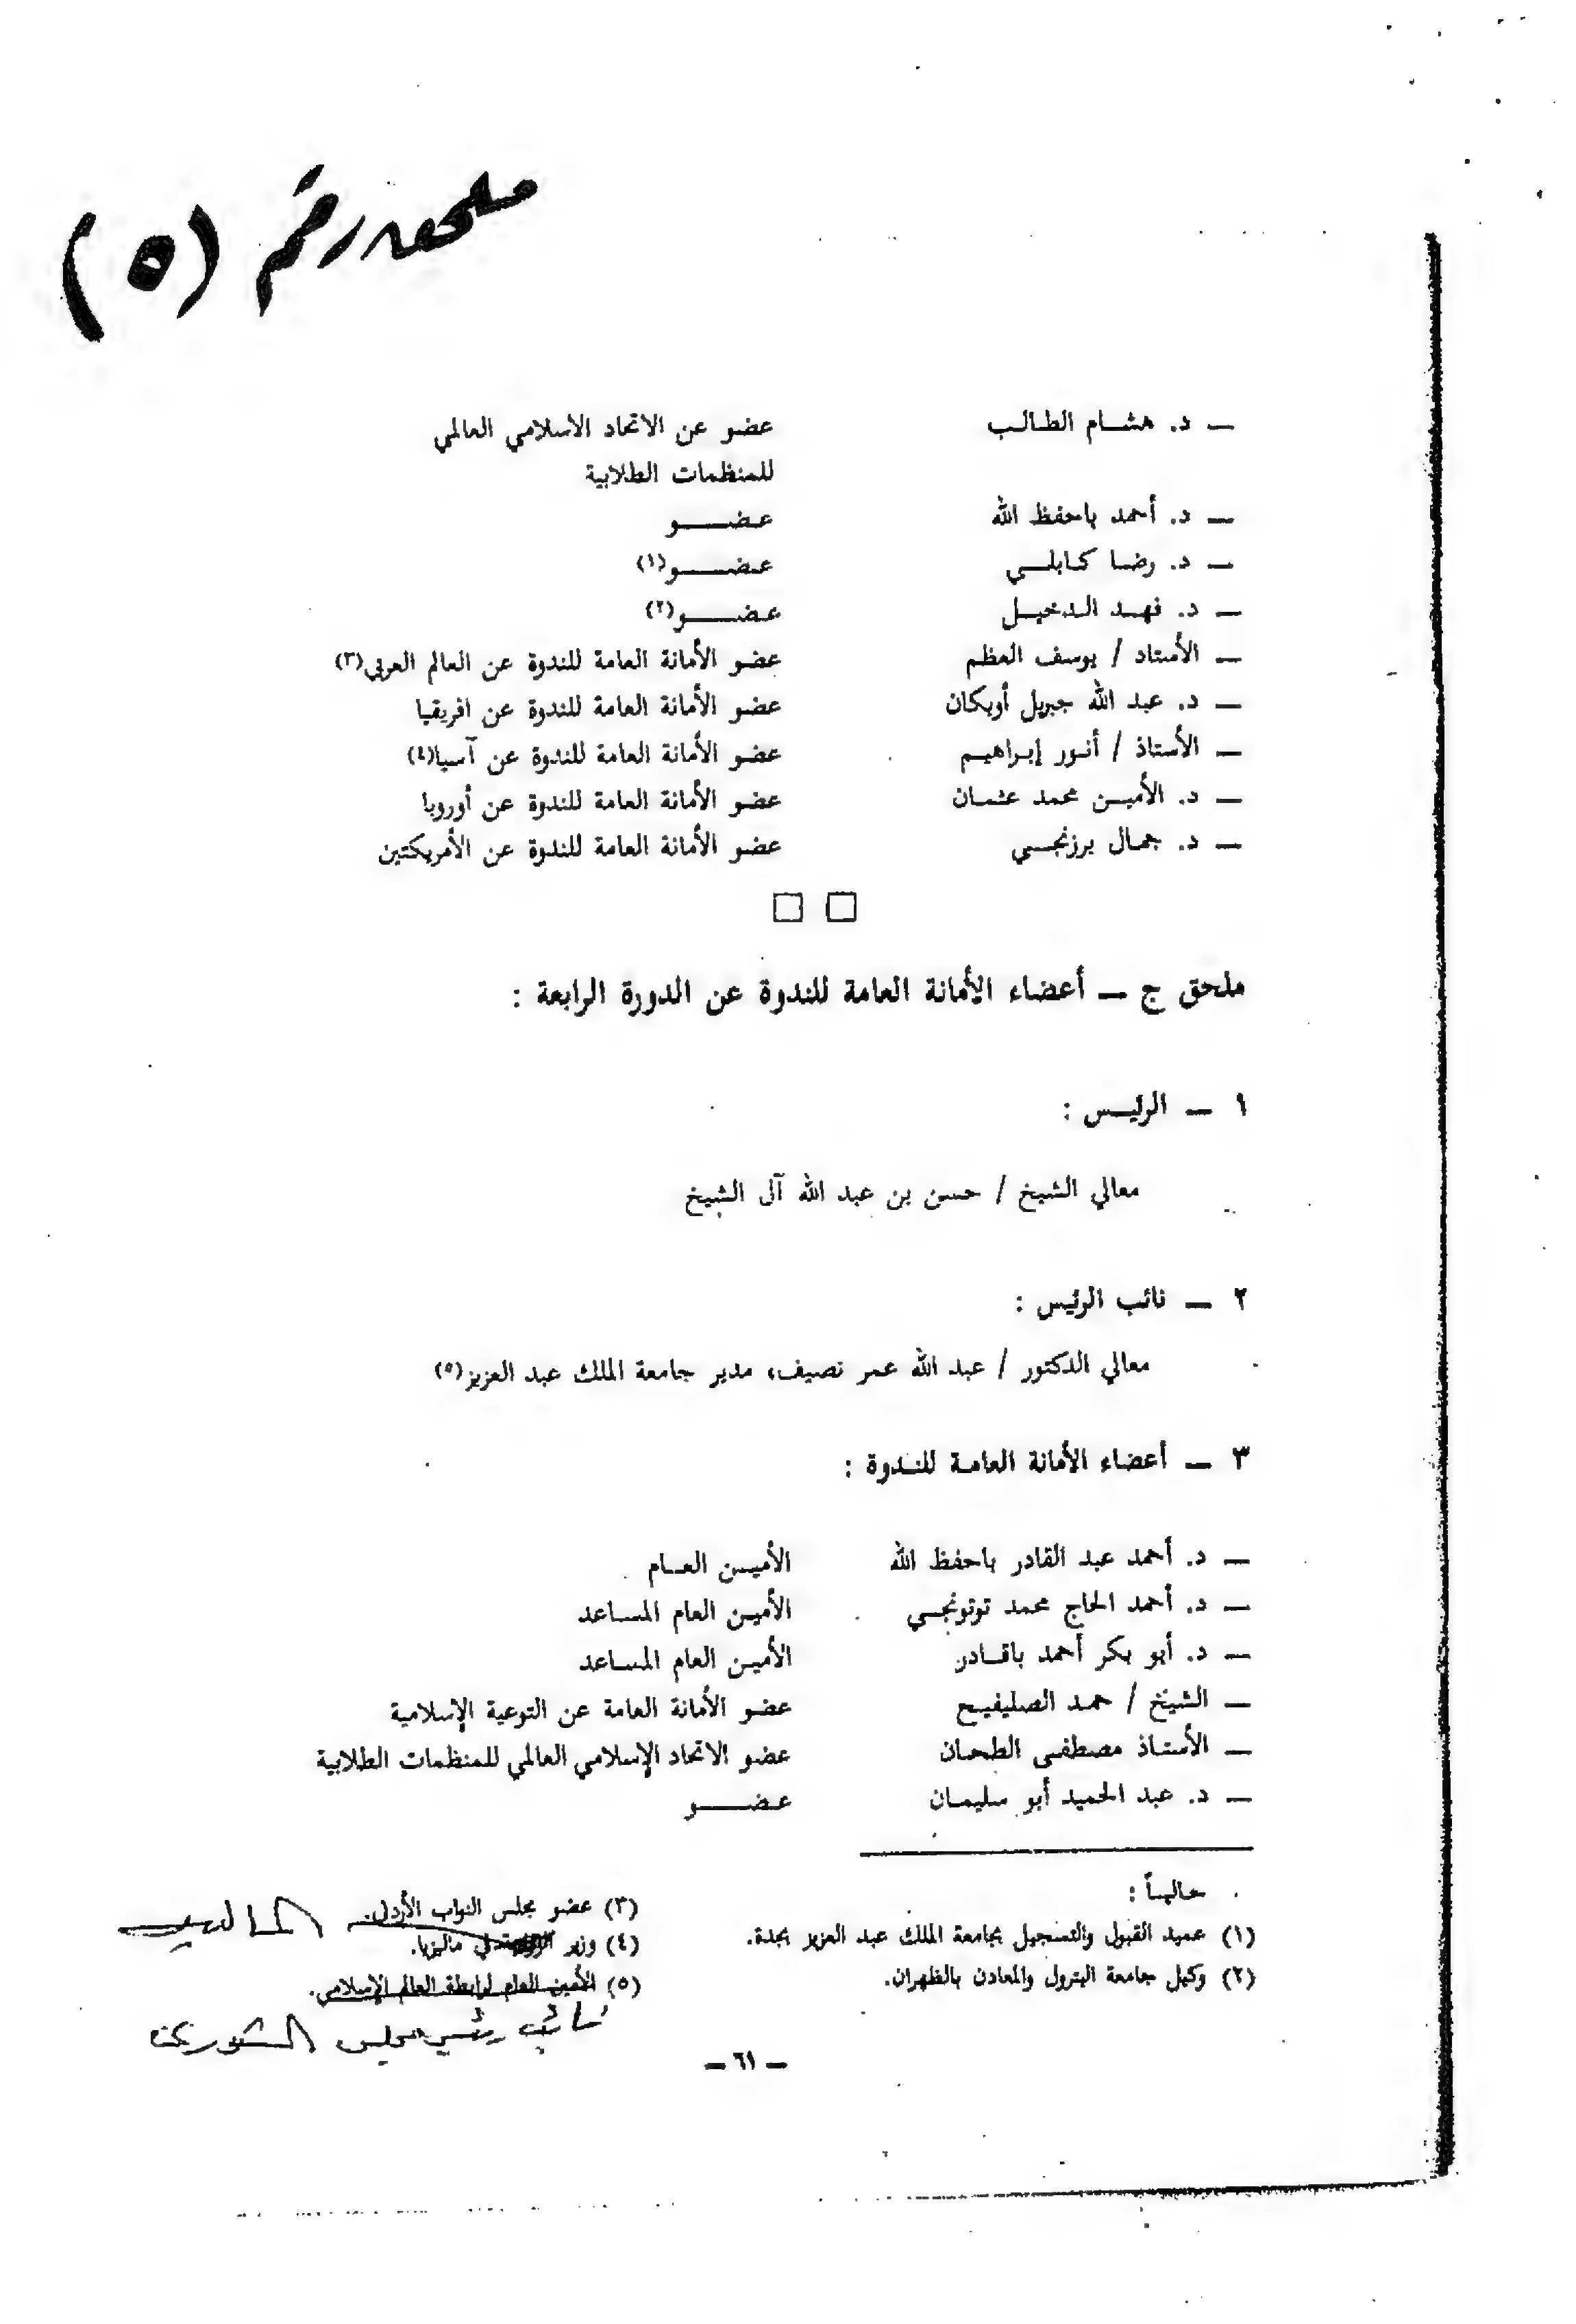 ملحق رقم (٥)
— د. هشام الطالب عضو عن الاتحاد الاسلامي العالمي
للمنظمات الطلابية
— د. أحمد باحفظ الله عضو
— د. رضا كابلي عضو(١)
— د. فهد الدخيل عضو(٢)
— الأستاد / يوسف العظم عضو الأمانة العامة للندوة عن العالم العربي(٣)
— د. عبد الله جبريل أويكان عضو الأمانة العامة للندوة عن افريقيا
— الأستاذ / أنور إبراهيم عضو الأمانة العامة للندوة عن آسيا(٤)
— د. الأمين محمد عثمان عضو الأمانة العامة للندوة عن أوروبا
— د. جمال برزنجي عضو الأمانة العامة للندوة عن الأمريكتين
ملحق ج — أعضاء الأمانة العامة للندوة عن الدورة الرابعة :
١ — الرئيس :
معالي الشيخ / حسن بن عبد الله آل الشيخ
٢ — نائب الرئيس :
معالي الدكتور / عبد الله عمر نصيف، مدير جامعة الملك عبد العزيز(٥)
٣ — أعضاء الأمانة العامة للندوة :
— د. أحمد عبد القادر باحفظ الله الأمين العام
— د. أحمد الحاج محمد توتونجي الأمين العام المساعد
— د. أبو بكر أحمد باقادر الأمين العام المساعد
— الشيخ / حمد الصليفيح عضو الأمانة العامة عن التوعية الإسلامية
— الأستاذ مصطفى الطحان عضو الاتحاد الإسلامي العالمي للمنظمات الطلابية
— د. عبد الحميد أبو سليمان عضو
حالياً :
(١) عميد القبول والتسجيل بجامعة الملك عبد العزيز بجدة.
(٢) وكيل جامعة البترول والمعادن بالظهران.
(٣) عضو مجلس النواب الأردني.
(٤) وزير في ماليزيا. المالية
(٥) الأمين العام لرابطة العالم الإسلامي.
نائب رئيس مجلس الشورى
— ٦١ —